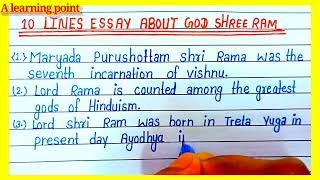 A learning point
10 LINES ESSAY ABOUT GOD SHREE RAM
(1.) Maryada Purushottam Shri Rama was the
seventh incarnation of vishnu.
(2.) Lord Rama is counted among the greatest
gods of Hinduism.
(3.) Lord shri Ram was born in Treta Yuga in
present day Ayodhya i